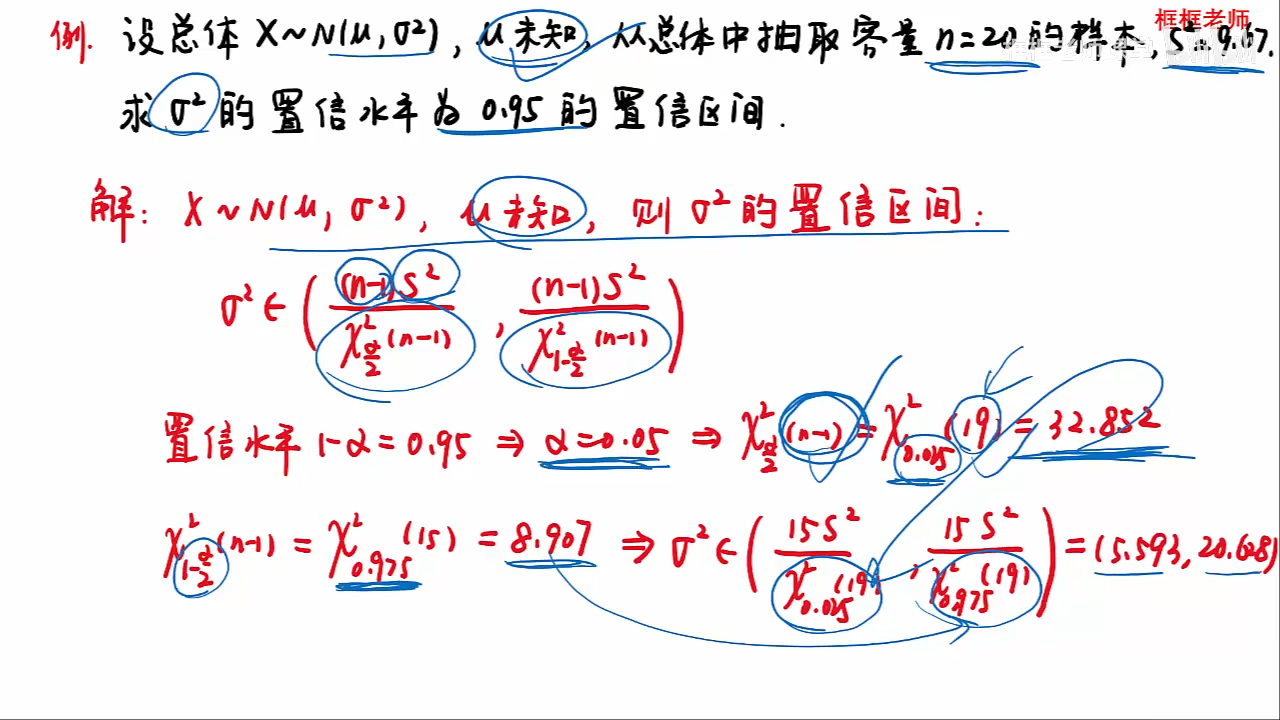 框框老师
例. 设总体 X~N(μ, σ²), μ未知, 从总体中抽取容量 n=20 的样本, S²=9.67.
求 σ² 的置信水平为 0.95 的置信区间.
解: X~N(μ, σ²), μ未知, 则 σ² 的置信区间:
σ² ∈ ( (n-1)S² / χ²_{α/2}(n-1) , (n-1)S² / χ²_{1-α/2}(n-1) )
置信水平 1-α=0.95 ⇒ α=0.05 ⇒ χ²_{α/2}(n-1) = χ²_{0.025}(19) = 32.852
χ²_{1-α/2}(n-1) = χ²_{0.975}(15) = 8.907 ⇒ σ² ∈ ( 15S² / χ²_{0.025}(19) , 15S² / χ²_{0.975}(19) ) = (5.593, 20.628)